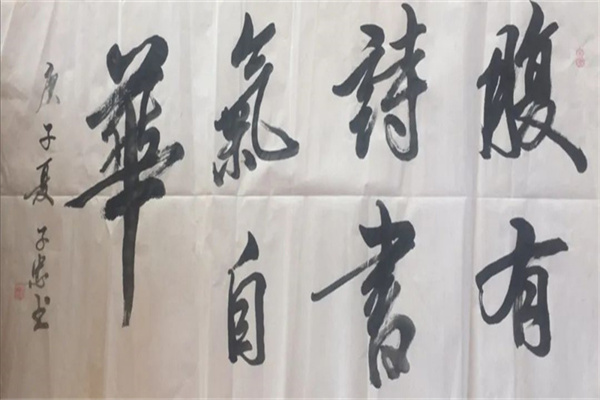 腹有
詩書
氣自
華
庚子夏子忠书